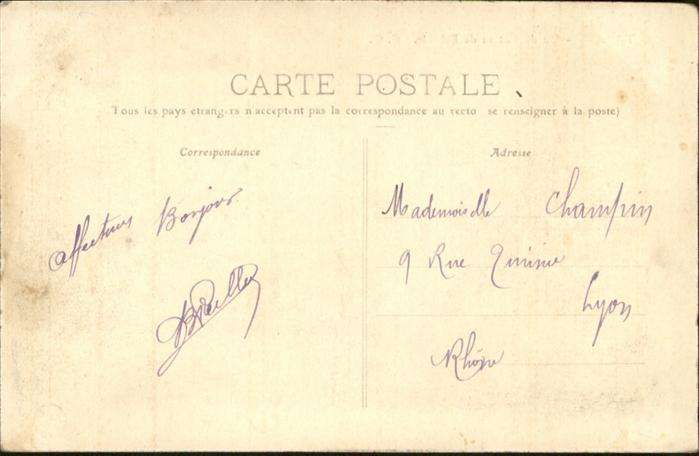 CARTE POSTALE
Tous les pays étrangers n'acceptent pas la correspondance au recto se renseigner à la poste)
Correspondance
affectueux Bonjour
Adresse
Mademoiselle Champin
9 Rue
Lyon
Rhône